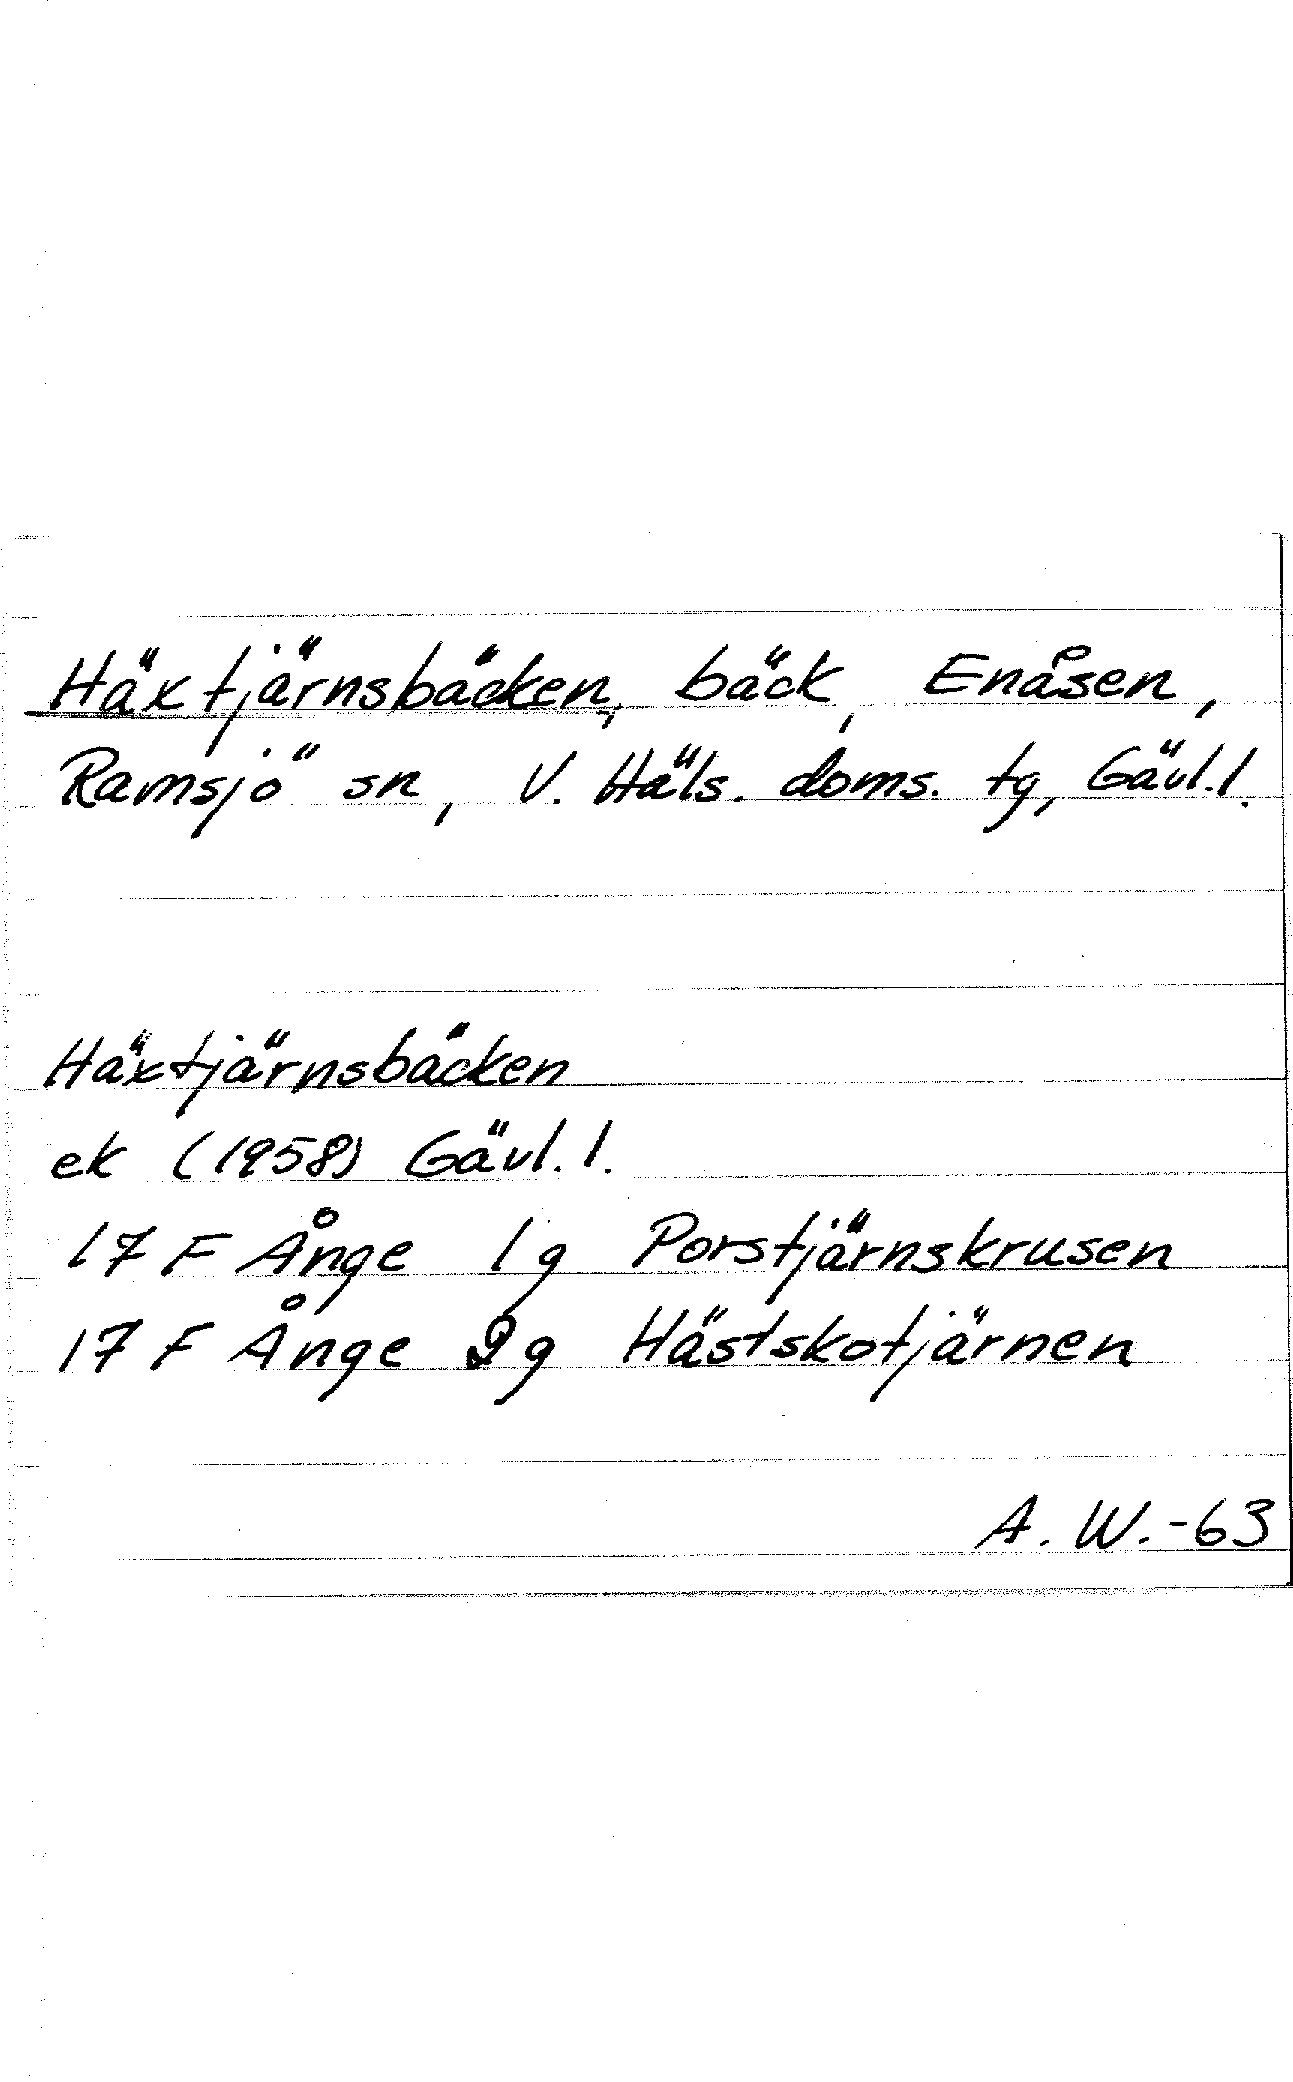 Häxtjärnsbäcken, bäck, Enåsen,
Ramsjö sn, V. Häls. doms. tg, Gävl. l.
Häxtjärnsbäcken
ek (1958) Gävl. l.
17 F Ånge 1 g Porstjärnskrusen
17 F Ånge 2 g Hästskotjärnen
A. W. -63